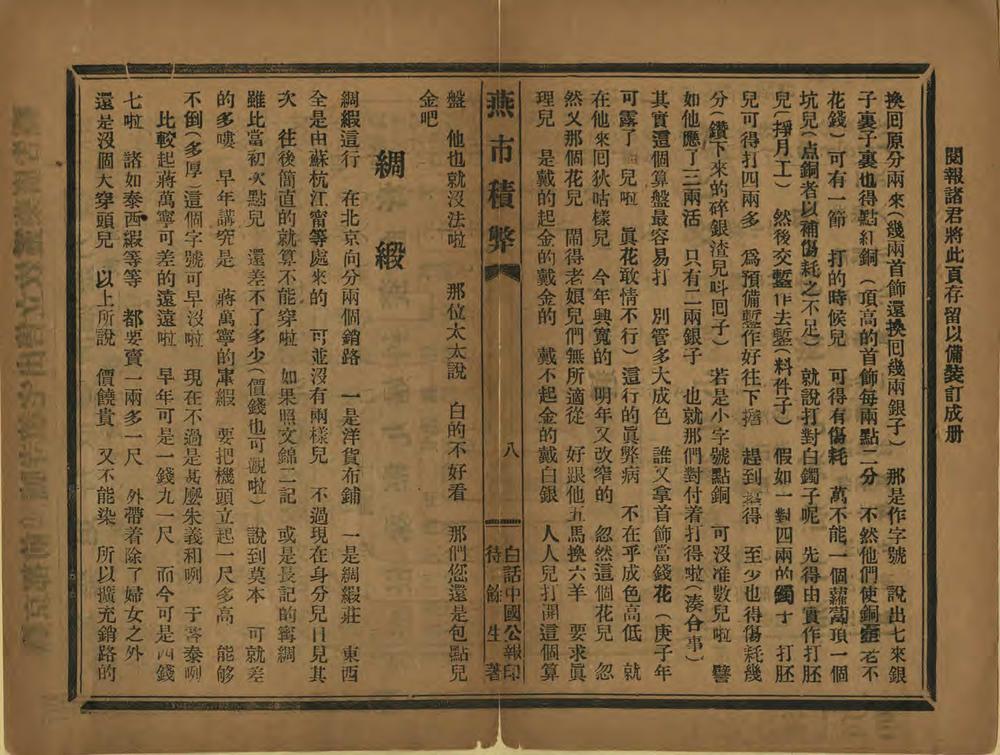 閱報諸君將此頁存留以備裝訂成册
換回原分兩來(幾兩首飾還換回幾兩銀子) 那是作字號 說出七來銀
子裏子裏也得點紅銅(頂高的首飾每兩點二分 不然他們使銅壺老不
花錢)可有一節 打的時候兒 可得有傷耗 萬不能一個蘿蔔頂一個
坑兒(点銅者以補傷耗之不足) 就說打對白鐲子呢 先得由實作打胚
兒(掙月工) 然後交鏨作去鏨(料件子) 假如一對四兩的鐲子 打胚
兒可得打四兩多 爲預備鏨作好往下 趕到 得 至少也得傷耗幾
分(鑽下來的碎銀渣兒叫回子) 若是小字號點銅 可沒准數兒啦 譬
如他應了三兩活 只有二兩銀子 也就那們對付着打得啦(湊合事)
其實這個算盤最容易打 別管多大成色 誰又拿首飾當錢花(庚子年
可露了 兒啦 眞花敢情不行)這行的眞弊病 不在乎成色高低 就
在他來回狄咕樣兒 今年興寬的 明年又改窄的 忽然這個花兒 忽
然又那個花兒 鬧得老娘兒們無所適從 好跟他五馬換六羊 要求眞
理兒 是戴的起金的戴金的 戴不起金的戴白銀 人人兒打開這個算
燕市積弊
八
白話中國公報印
待餘生著
盤 他也就沒法啦 那位太太說 白的不好看 那們您還是包點兒
金吧
綢緞
綢緞這行 在北京向分兩個銷路 一是洋貨布鋪 一是綢緞莊 東西
全是由蘇杭江甯等處來的 可並沒有兩樣兒 不過現在身分兒日見其
次 往後簡直的就算不能穿啦 如果照文錦二記 或是長記的甯綢
雖比當初次點兒 還差不了多少(價錢也可觀啦) 說到莫本 可就差
的多嘍 早年講究是 蔣萬寧的庫緞 要把機頭立起一尺多高 能够
不倒(多厚)這個字號可早沒啦 現在不過是甚麼朱義和咧 于啓泰咧
比較起蔣萬寧可差的遠遠啦 早年可是一錢九一尺 而今可是四錢
七啦 諸如泰西緞等等 都要賣一兩多一尺 外帶着除了婦女之外
還是沒個大穿頭兒 以上所說 價饒貴 又不能染 所以擴充銷路的